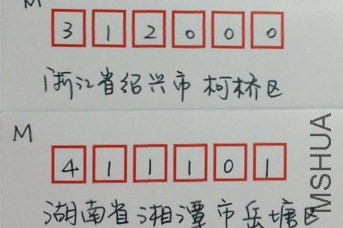 M
312000
浙江省绍兴市柯桥区
M
411101
湖南省湘潭市岳塘区
MSHUA